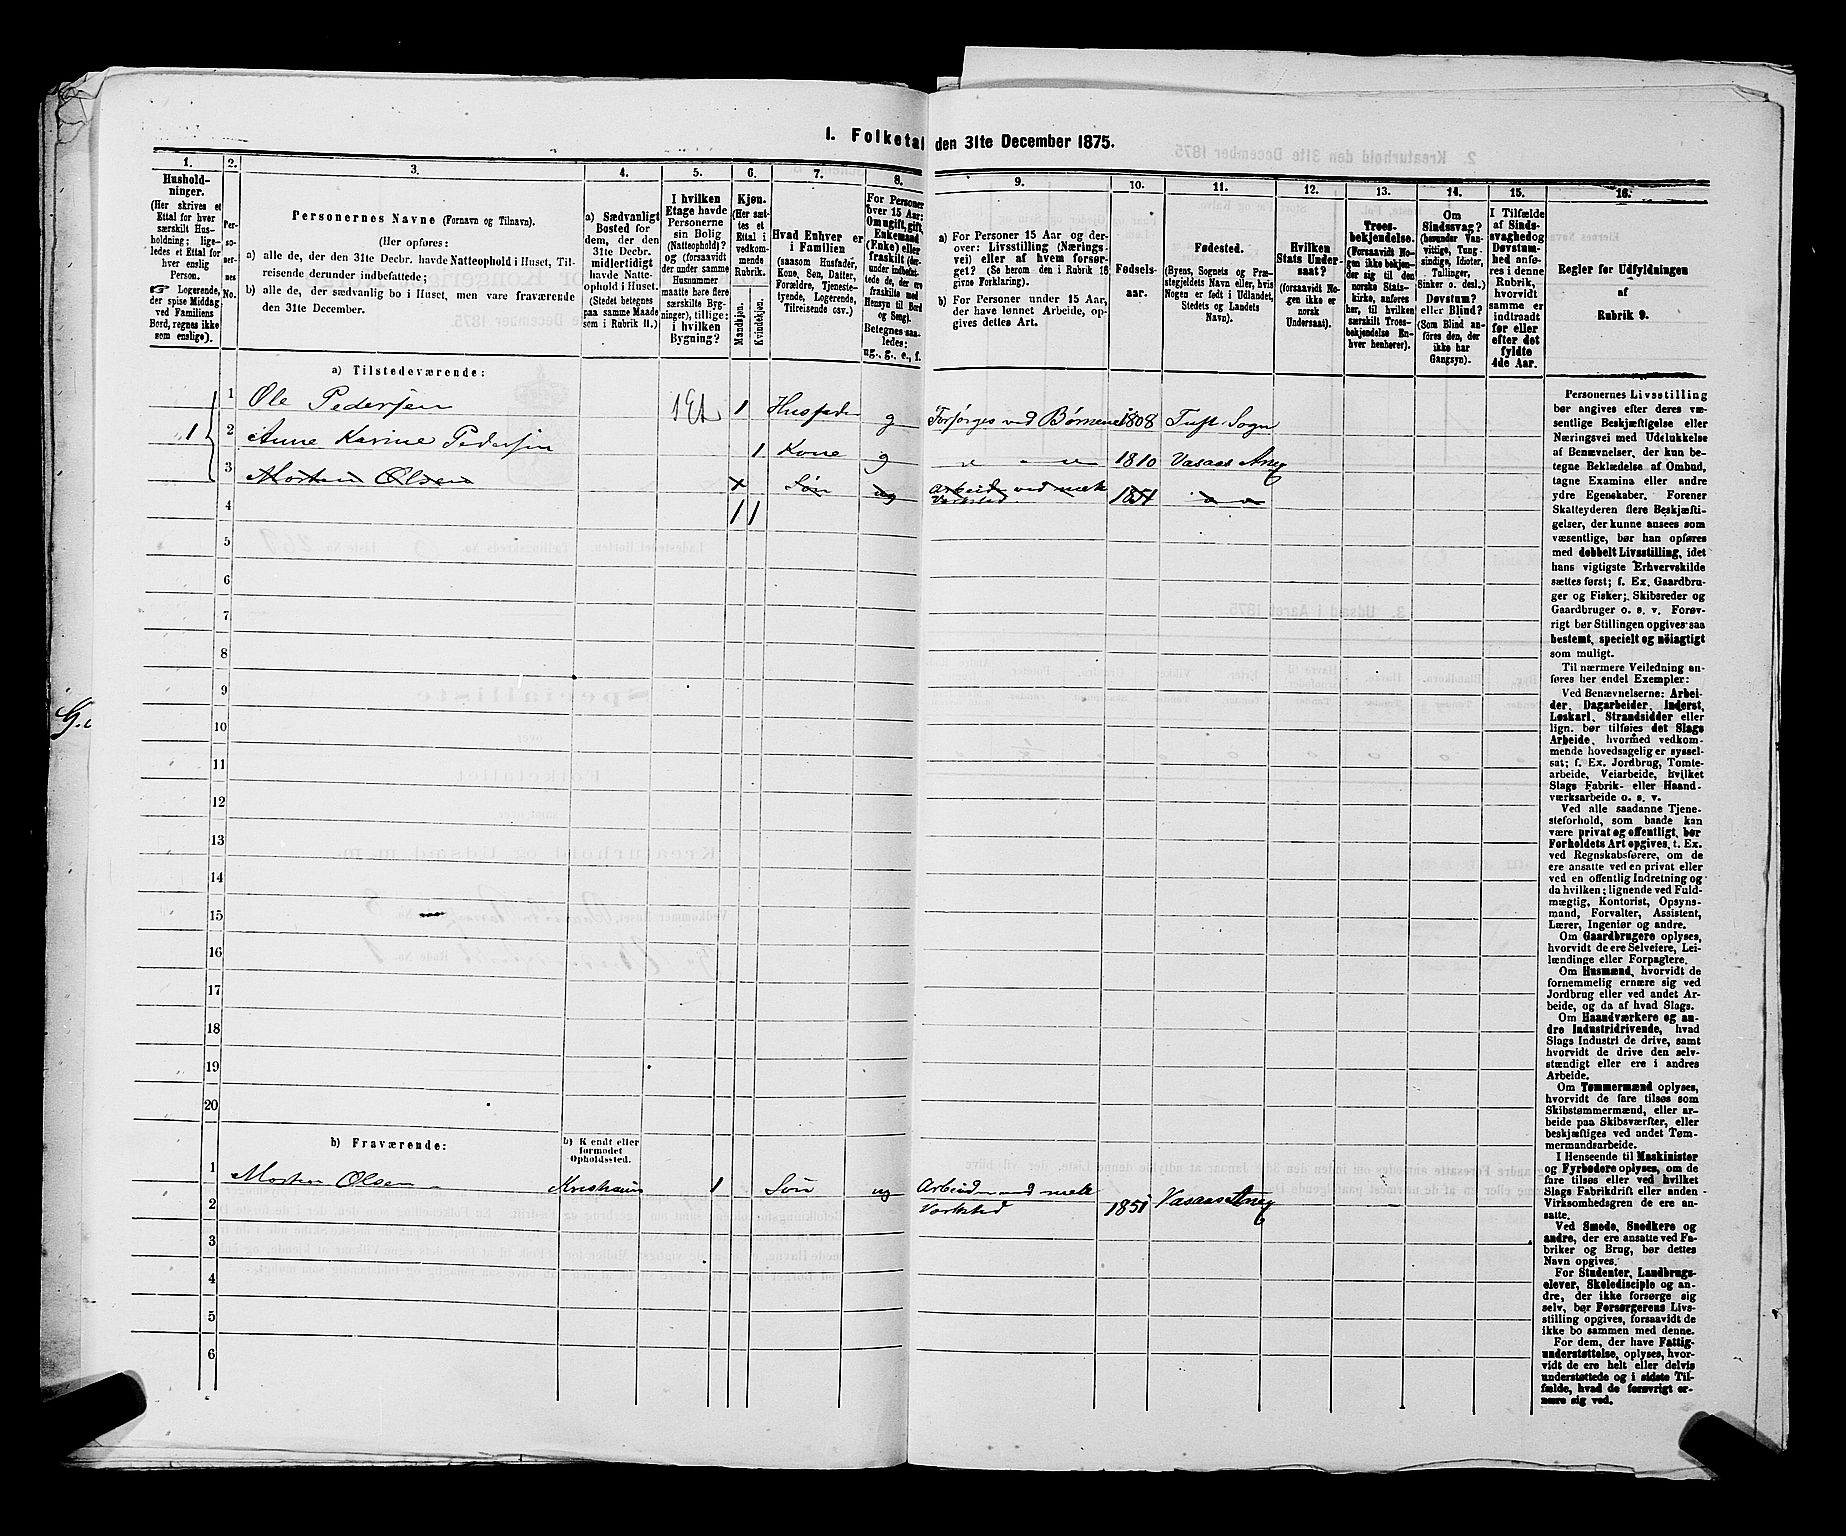 I. Folketal den 31te December 1875.
1.
Hushold-
ninger.
(Her skrives et
Ettal for hver
særskilt Hus-
holdning; lige-
ledes et Ettal for
hver enslig
Person.
☞ Logerende,
der spise Middag
ved Familiens
Bord, regnes ikke
som enslige).
2.
Per-
so-
ner-
nes
No.
3.
Personernes Navne (Fornavn og Tilnavn).
(Her opføres:
a) alle de, der den 31te Decbr. havde Natteophold i Huset, Til-
reisende derunder indbefattede;
b) alle de, der sædvanlig bo i Huset, men vare fraværende
den 31te December.
4.
a) Sædvanligt
Bosted for
dem, der den
31te Decbr.
midlertidigt
havde Natte-
ophold i Huset.
(Stedet betegnes
paa samme Maade
som i Rubrik 11.)
5.
I hvilken
Etage havde
Personerne
sin Bolig
(Natteophold)?
og (forsaavidt
der under samme
Husnummer
maatte høre flere
særskilte Byg-
ninger), tillige:
i hvilken
Bygning?
6.
Kjøn.
(Her sæt-
tes et
Ettal i
vedkom-
mende
Rubrik.
Mandkjøn.
Kvindekjøn.
7.
Hvad Enhver er
i Familien
(saasom Husfader,
Kone, Søn, Datter,
Forældre, Tjeneste-
tyende, Logerende,
Tilreisende osv.)
8.
For Personer
over 15 Aar:
Om ugift, gift,
Enkemand
(Enke) eller
fraskilt (der-
under indbefat-
tede de, der
ere fraskilte med
Hensyn til Bord
og Seng).
Betegnes saa-
ledes:
ug., g., e., f.
9.
a) For Personer 15 Aar og der-
over: Livsstilling (Nærings-
vei) eller af hvem forsør-
get? (Se herom den i Rubrik 16
givne Forklaring).
b) For Personer under 15 Aar,
der have lønnet Arbeide, op-
gives dettes Art.
10.
Fødsels-
aar.
11.
Fødested.
(Byens, Sognets og Præ-
stegjeldets Navn eller, hvis
Nogen er født i Udlandet,
Stedets og Landets
Navn).
12.
Hvilken
Stats Under-
saat?
(forsaavidt No-
gen ikke er
norsk
Undersaat).
13.
Troes-
bekjendelse.
(Forsaavidt No-
gen ikke bekjen-
der sig til den
norske Stats-
kirke, anføres
her, til hvilken
særskilt Troes-
bekjendelse En-
hver henhører).
14.
Om
Sindssvag?
(herunder Van-
vittige, Tung-
sindige, Idioter,
Tullinger,
Sinker o. desl.)
Døvstum?
eller Blind?
(Som Blind an-
føres den, der
ikke har
Gangsyn).
15.
I Tilfælde
af Sinds-
svaghed og
Døvstum-
hed anfø-
res i denne
Rubrik,
hvorvidt
samme er
indtraadt
før eller
efter det
fyldte
4de Aar.
16.
Regler for Udfyldningen
af
Rubrik 9.
a) Tilstedeværende:
1 1 Ole Pedersen 1 Et 1 Husfader g Forsørges ved Børnene 1808 Tuft Sogn
2 Anne Karine Pedersen 1 Kone g " " " 1810 Vasaas Anex
3 Morten Olsen x Søn ug Arbeid ved mek Varksted 1851 " "
4 1 1
5
6
7
8
9
10
11
12
13
14
15
16
17
18
19
20
b) Fraværende:
b) Kjendt eller
formodet
Opholdssted.
1 Morten Olsen Kristiania 1 Søn ug Arbeider ved mek Varksted 1851 Vasaas Anex
2
3
4
5
6
Personernes Livsstilling
bør angives efter deres væ-
sentlige Beskjæftigelse eller
Næringsvei med Udelukkelse
af Benævnelser, der kun be-
tegne Beklædelse af Ombud,
tagne Examina eller andre
ydre Egenskaber. Forener
Skatteyderen flere Beskjæfti-
gelser, der kunne ansees som
væsentlige, bør han opføres
med dobbelt Livsstilling, idet
hans vigtigste Erhvervskilde
sættes først; f. Ex. Gaardbru-
ger og Fisker; Skibsreder og
Gaardbruger o. s. v. Forøv-
rigt bør Stillingen opgives saa
bestemt, specielt og nøiagtigt
som muligt.
Til nærmere Veiledning an-
føres her endel Exempler:
Ved Benævnelserne: Arbei-
der, Dagarbeider, Inderst,
Løskarl, Strandsidder eller
lign. bør tilføies det Slags
Arbeide, hvormed vedkom-
mende hovedsagelig er syssel-
sat; f. Ex. Jordbrug, Tomte-
arbeide, Veiarbeide, hvilket
Slags Fabrik- eller Haand-
værksarbeide o. s. v.
Ved alle saadanne Tjene-
steforhold, som baade kan
være privat og offentligt, bør
Forholdets Art opgives, t. Ex.
ved Regnskabsførere, om de
ere ansatte ved en privat eller
ved en offentlig Indretning og
da hvilken; lignende ved Fuld-
mægtig, Kontorist, Opsyns-
mand, Forvalter, Assistent,
Lærer, Ingeniør og andre.
Om Gaardbrugere oplyses,
hvorvidt de ere Selveiere, Lei-
lændinge eller Forpagtere.
Om Husmænd, hvorvidt de
fornemmelig ernære sig ved
Jordbrug eller ved andet Ar-
beide, og da af hvad Slags.
Om Haandværkere og an-
dre Industridrivende, hvad
Slags Industri de drive, samt
hvorvidt de drive den selv-
stændigt eller ere i andres
Arbeide.
Om Tømmermænd oplyses,
hvorvidt de fare tilsøs som
Skibstømmermænd, eller ar-
beide paa Skibsværfter, eller
beskjæftiges ved andet Tøm-
mermandsarbeide.
I Henseende til Maskinister
og Fyrbødere oplyses, om de
fare tilsøs eller ved hvilket
Slags Fabrikdrift eller anden
Virksomhedsgren de ere an-
satte.
Ved Smede, Snedkere og
andre, der ere ansatte ved Fa-
briker og Brug, bør dettes
Navn opgives.
For Studenter, Landbrugs-
elever, Skoledisciple og an-
dre, der ikke forsørge sig
selv, bør Forsørgerens Livs-
stilling opgives, forsaavidt de
ikke bo sammen med denne.
For dem, der have Fattig-
understøttelse, oplyses, hvor-
vidt de ere helt eller delvis
understøttede og i sidste Til-
fælde, hvad de forøvrigt er-
nære sig ved.